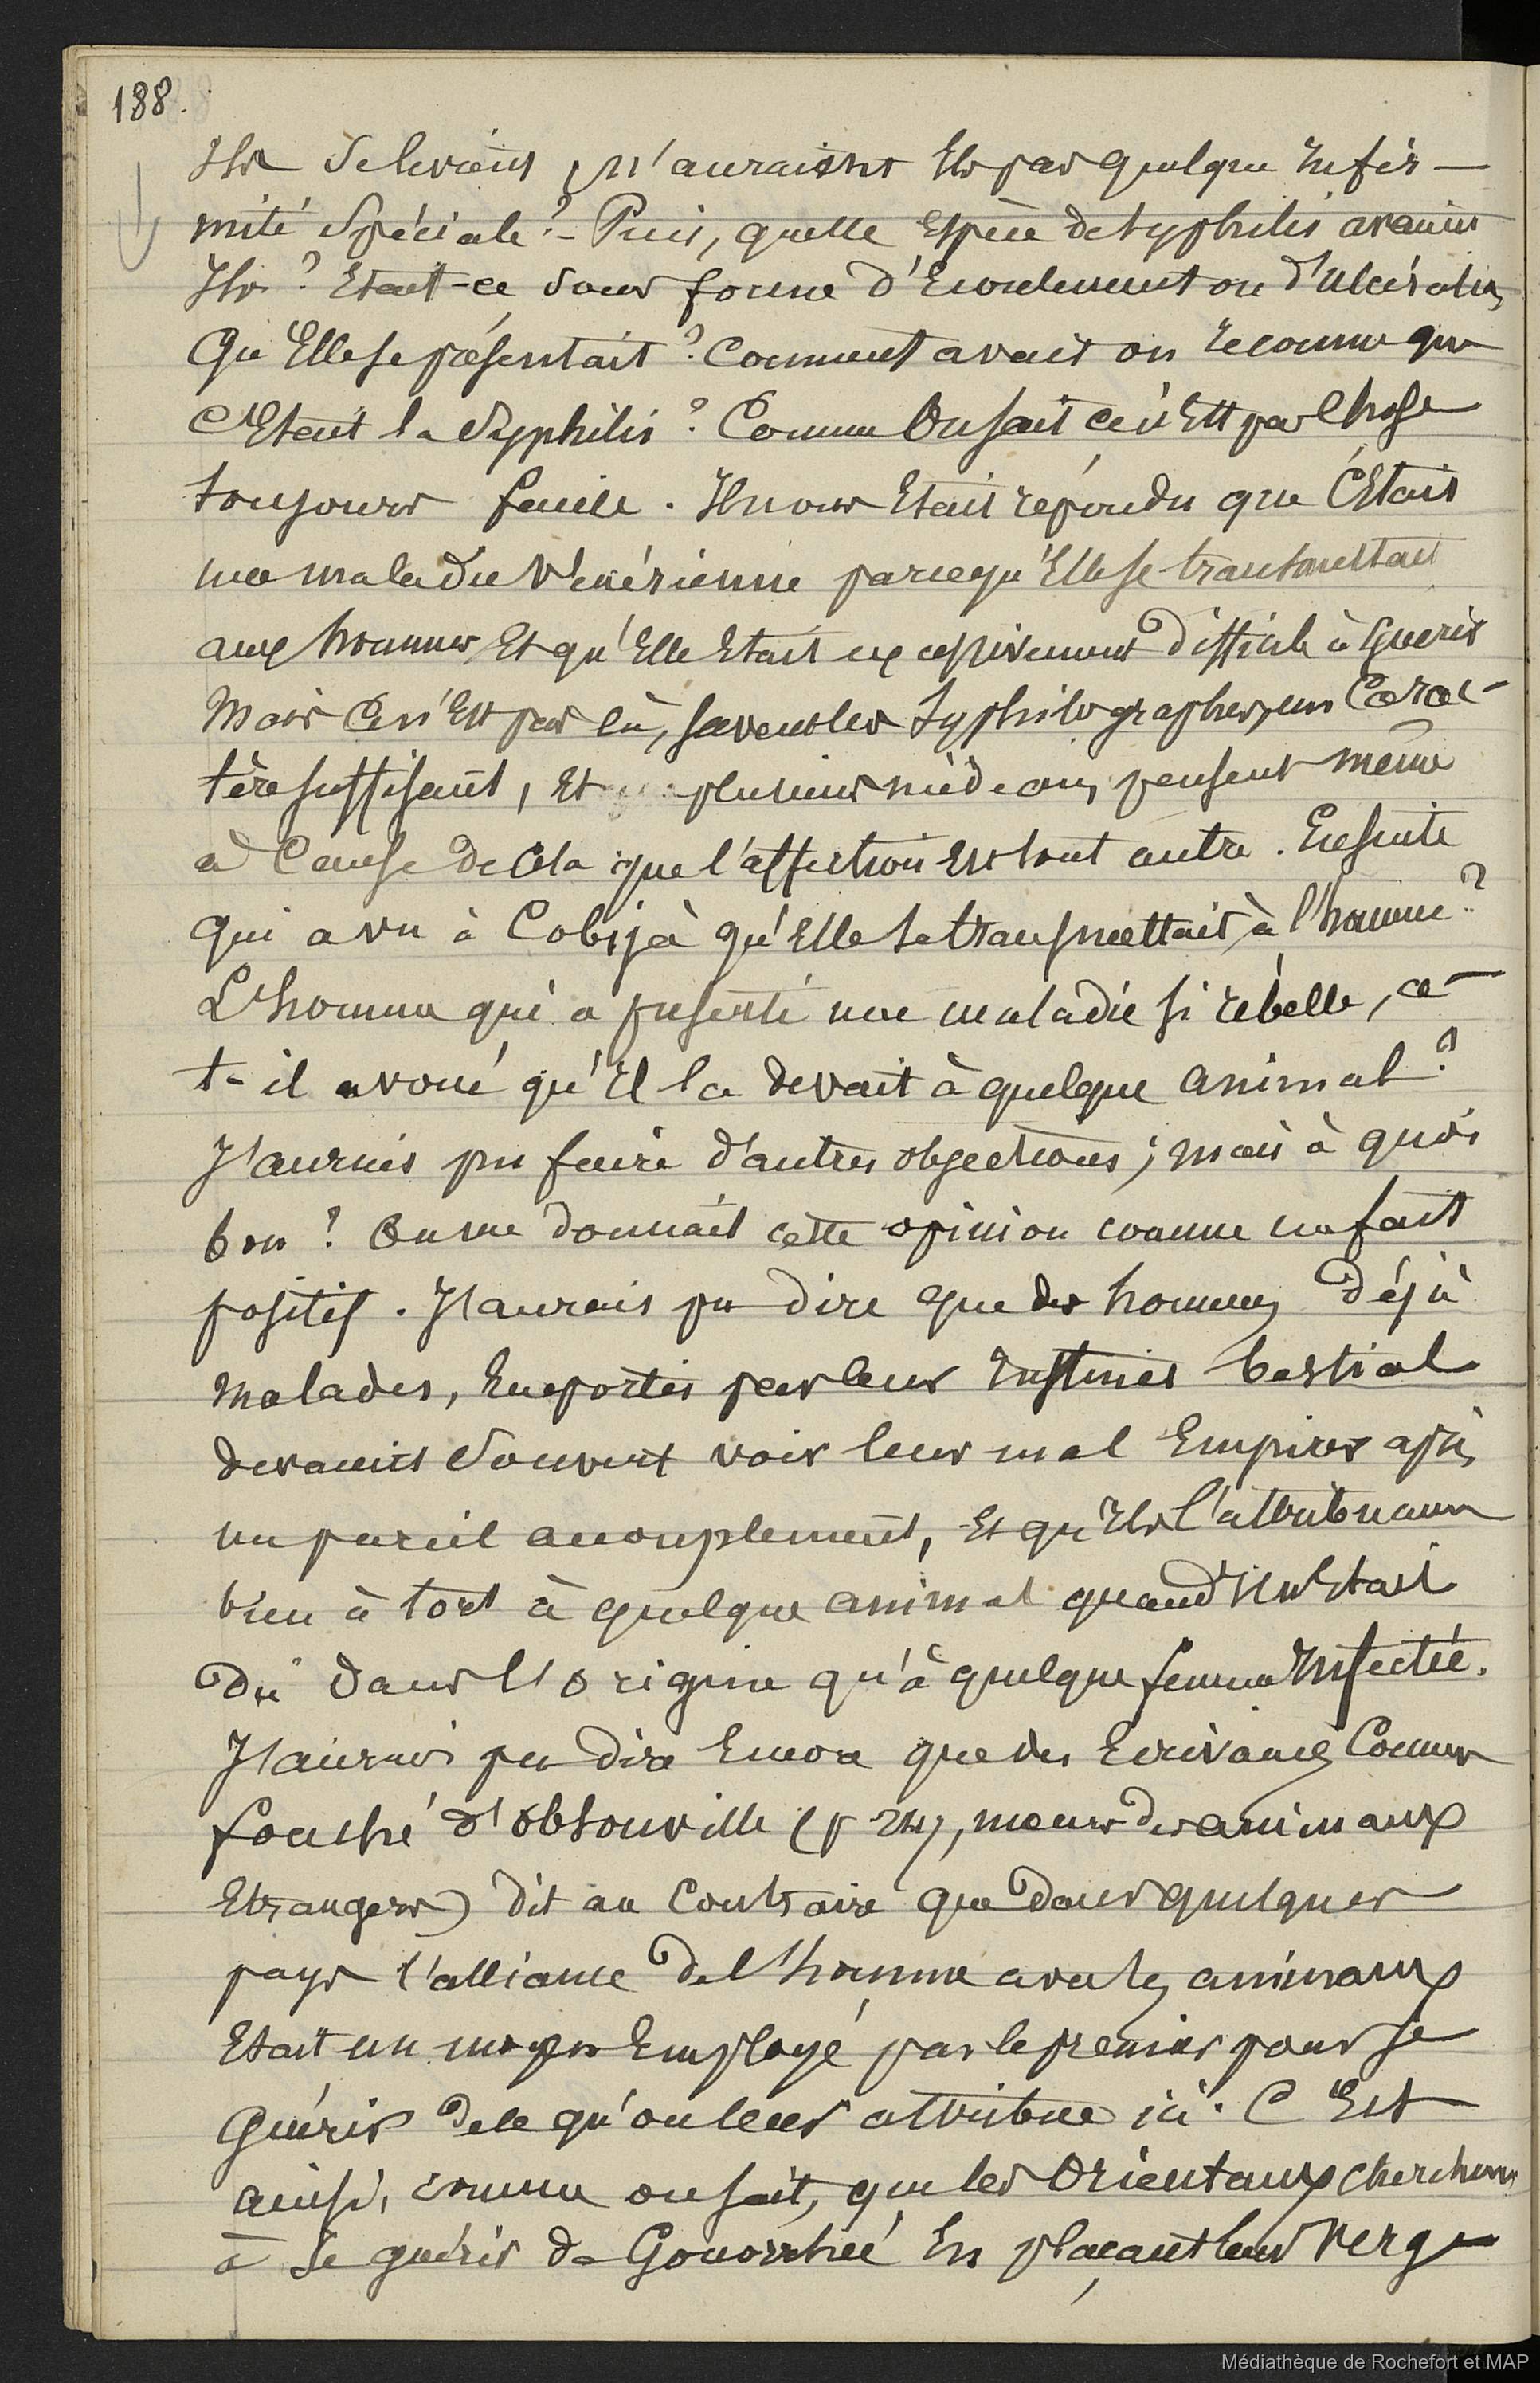 188.
Ils devraient, n'auraient ils pas quelque infir-
mité Spéciale? - Puis, quelle Espèce de Syphilis avaient
Ils? Etait-ce sous forme d'Ecoulement ou d'Ulcération
Qu'Elle se présentait? Comment avait on reconnu que
c'Etait la Syphilis? Comme On sait ce n'Est pas Chose
toujours facile. Il nous Etait répondu que C'Etait
une maladie Vénérienne parcequ'Elle se transmettait
aux hommes Et qu'Elle Etait excessivement difficile à Guérir
Mais Ce n'Est pas là, savent les Syphilographes, un Carac-
tère suffisant, Et plusieurs médecins pensent même
à Cause de Cela que l'affection Est tout autre. Ensuite
qui a vu à Cobija qu'Elle se transmettait à l'homme?
L'homme qui a présenté une maladie si rebelle, a-
t-il avoué qu'Il la devait à quelque animal?
J'aurais pu faire d'autres objections; mais à quoi
bon? On me donnait cette opinion comme un fait
positif. J'aurais pu dire que des hommes déjà
malades, Emportés par leur Instinct bestial
devaient Souvent voir leur mal Empirer après
un pareil accouplement, Et qu'Ils l'attribuaient
bien à tort à quelque animal quand Il n'Etait
Dû dans l'origine qu'à quelque femme Infectée.
J'aurais pu dire Encore que des Ecrivains Comme
fouché d'Obsonville (p , mœurs des animaux
Etrangers) dit au Contraire que dans quelques
pays l'alliance de l'homme avec les animaux
Etait un moyen Employé par le premier pour se
Guérir de ce qu'on leur attribue ici. C'Est
ainsi, comme on sait, que les Orientaux cherchent
à se guérir de Gonorrhée En plaçant leur Verge
Médiathèque de Rochefort et MAP